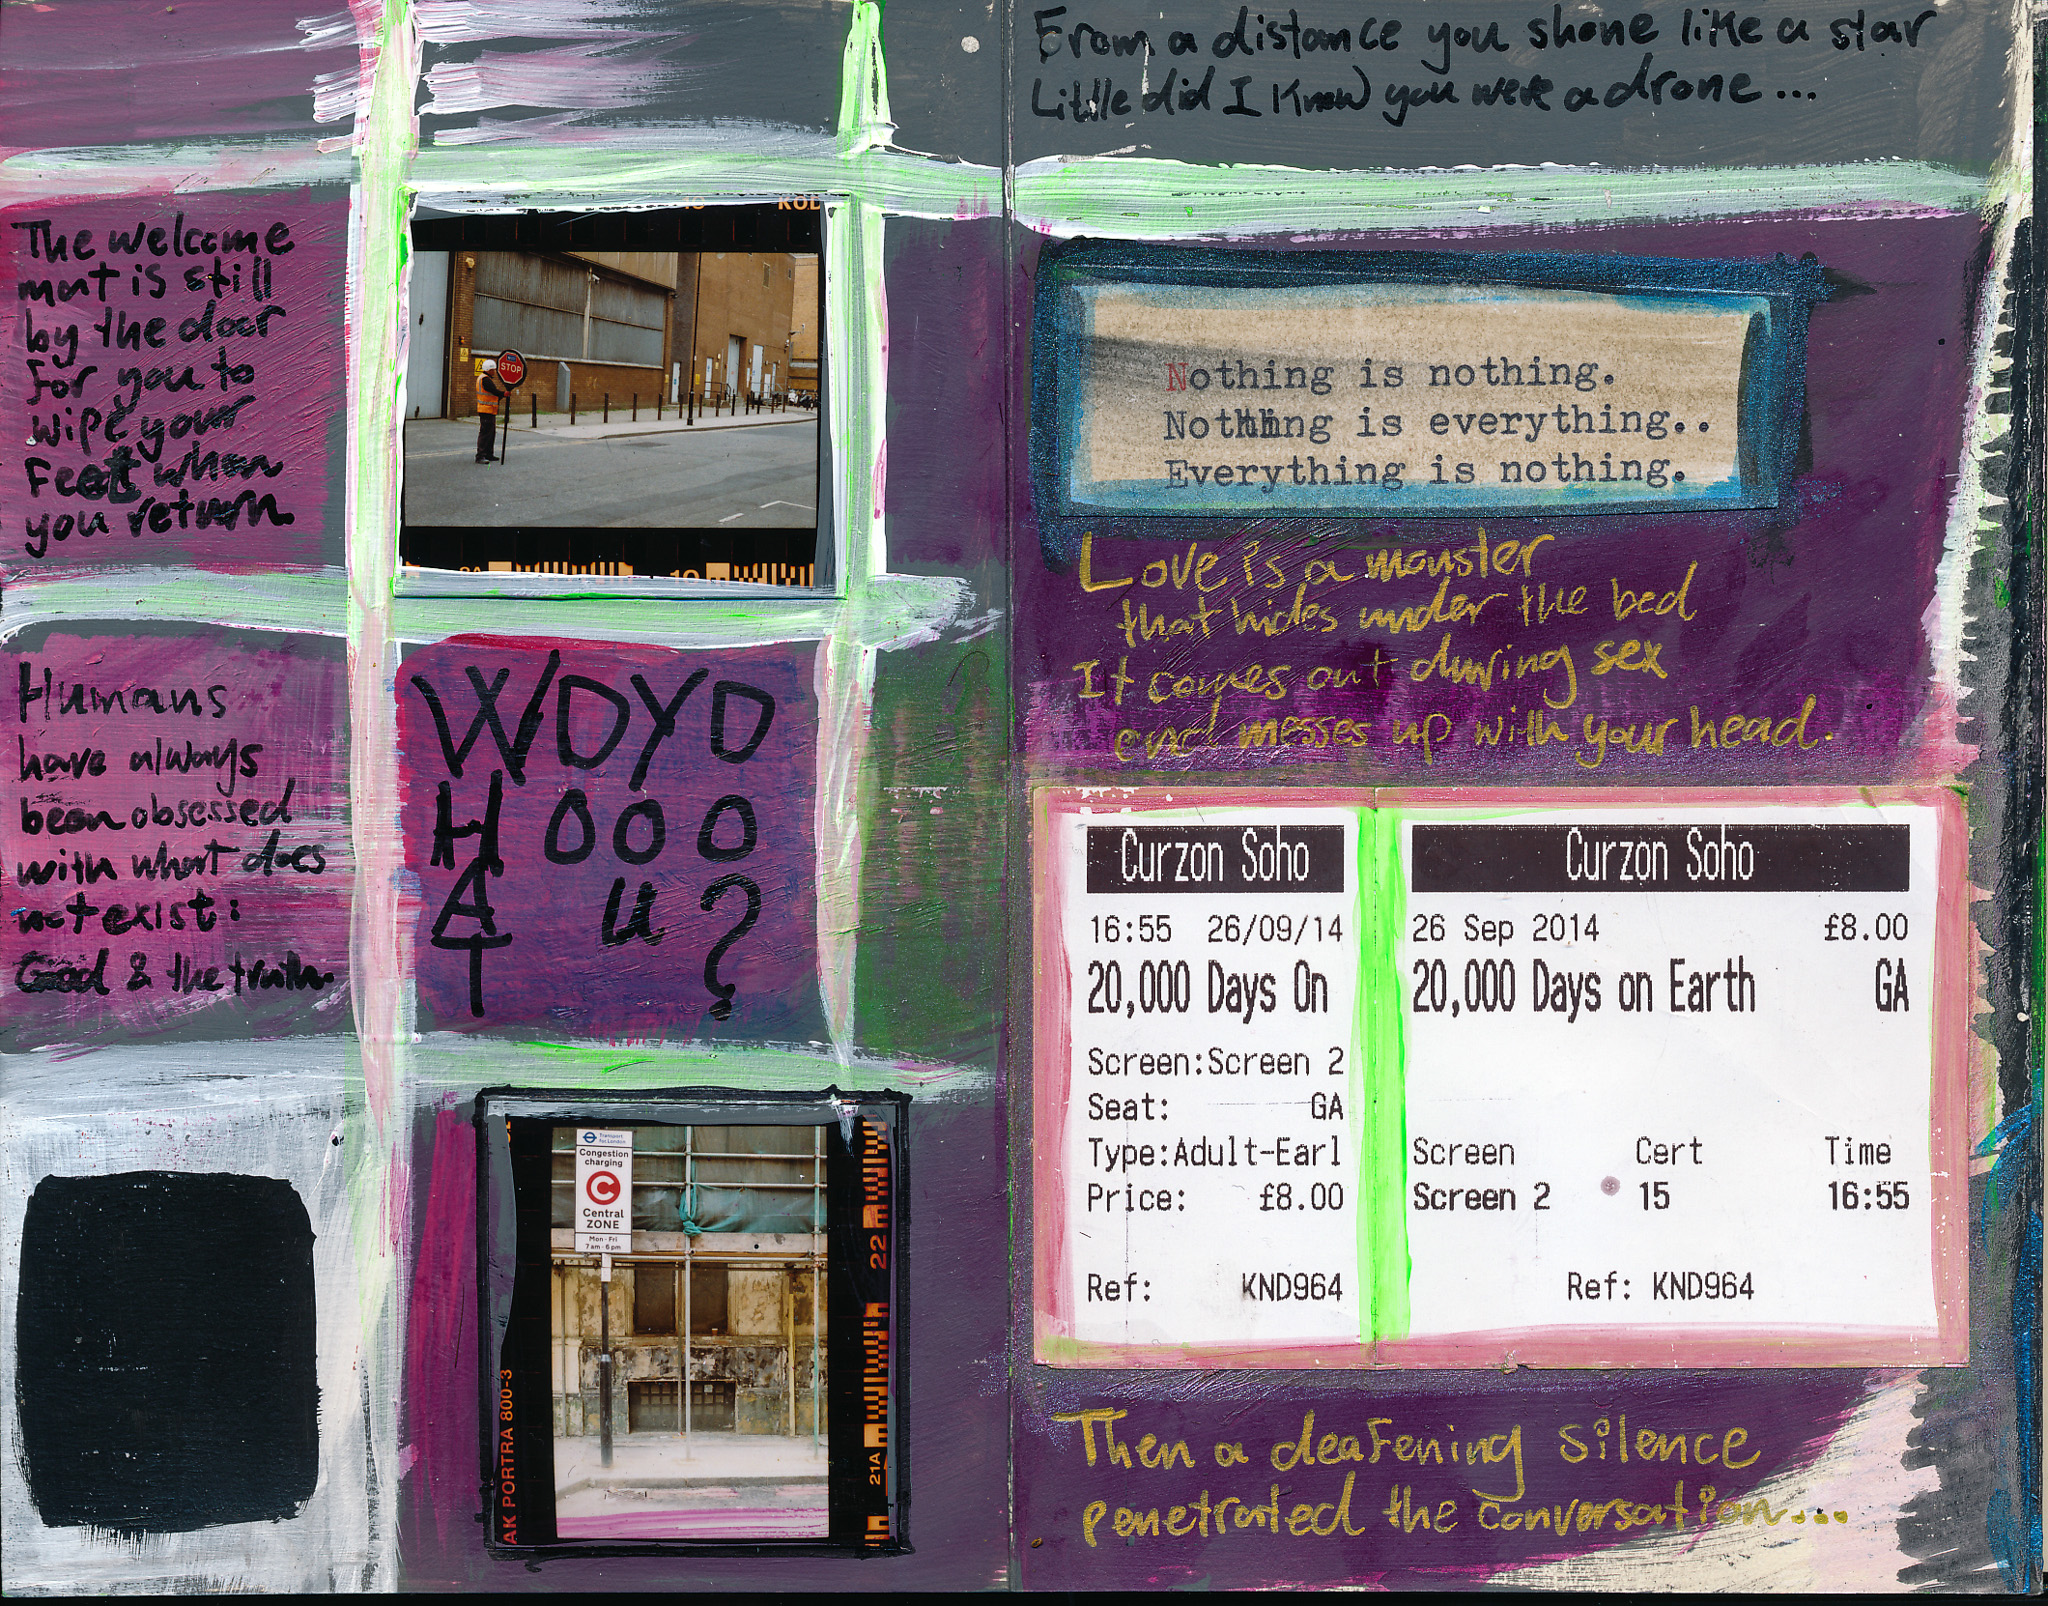 From a distance you shone like a star
Little did I know you were a drone...
The welcome
mat is still
by the door
for you to
wipe your
feet when
you return.
KOD
STOP
Nothing is nothing.
Nothing is everything..
Everything is nothing.
Love is a monster
that hides under the bed
It comes out during sex
and messes up with your head.
Humans
have always
been obsessed
with what does
not exist:
God & the truth.
WDYD
H O O O
A U ?
T
Curzon Soho
16:55 26/09/14
20,000 Days On
Screen:Screen 2
Seat: GA
Type:Adult-Earl
Price: £8.00
Ref: KND964
Curzon Soho
26 Sep 2014 £8.00
20,000 Days on Earth GA
Screen Cert Time
Screen 2 15 16:55
Ref: KND964
Transport
for London
Congestion
charging
C
Central
ZONE
Mon - Fri
7 am - 6 pm
AK PORTRA 800-3
22
21A
Then a deafening silence
penetrated the conversation...